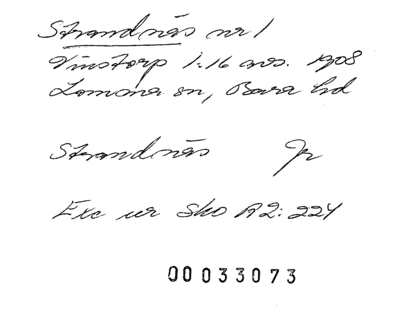 Strandnäs nr 1
Vinstorp 1:16 avs. 1908
Lomma sn, Bara hd
Strandnäs Jr
Exc ur Sko R2: 224
00033073